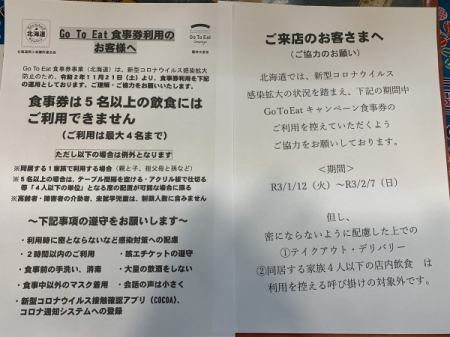 北海道
Go To Eat 食事券利用の
お客様へ
Go To Eat
Go To Eat 食事券事業（北海道）は、新型コロナウイルス感染拡大
防止のため、令和2年11月21日（土）より、食事券利用を下記
の運用としております。ご理解・ご協力をお願いいたします。
食事券は５名以上の飲食には
ご利用できません
（ご利用は最大４名まで）
ただし以下の場合は例外となります
※同居する１家族で利用する場合（親と子、祖父母と孫など）
※５名以上の場合は、テーブル間隔を空ける・アクリル板で仕切る
等「４人以下の単位」となる席の配置が可能な場合に限る
※高齢者・障害者の介助者、未就学児童は、制限人数に含みません
～下記事項の遵守をお願いします～
・利用時に密とならないなど感染対策への配慮
・２時間以内のご利用
・咳エチケットの遵守
・食事前の手洗い、消毒
・大量の飲酒をしない
・食事中以外のマスク着用
・会話の声は小さく
・新型コロナウイルス接触確認アプリ（COCOA）、
コロナ通知システムへの登録
ご来店のお客さまへ
（ご協力のお願い）
北海道では、新型コロナウイルス
感染拡大の状況を踏まえ、下記の期間中
GoToEat キャンペーン食事券の
ご利用を控えていただくよう
ご協力をお願いしております。
＜期間＞
R3/1/12（火）～R3/2/7（日）
但し、
密にならないように配慮した上での
①テイクアウト・デリバリー
②同居する家族４人以下の店内飲食　は
利用を控える呼び掛けの対象外です。